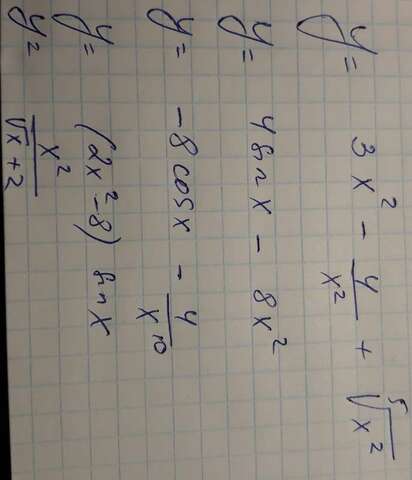 y = 3x² - 4/x² + ⁵√x²
y = 4 sin x - 8x²
y = -8 cos x - 4/x¹⁰
y = (2x² - 8) sin x
y = x²/(√x + 2)